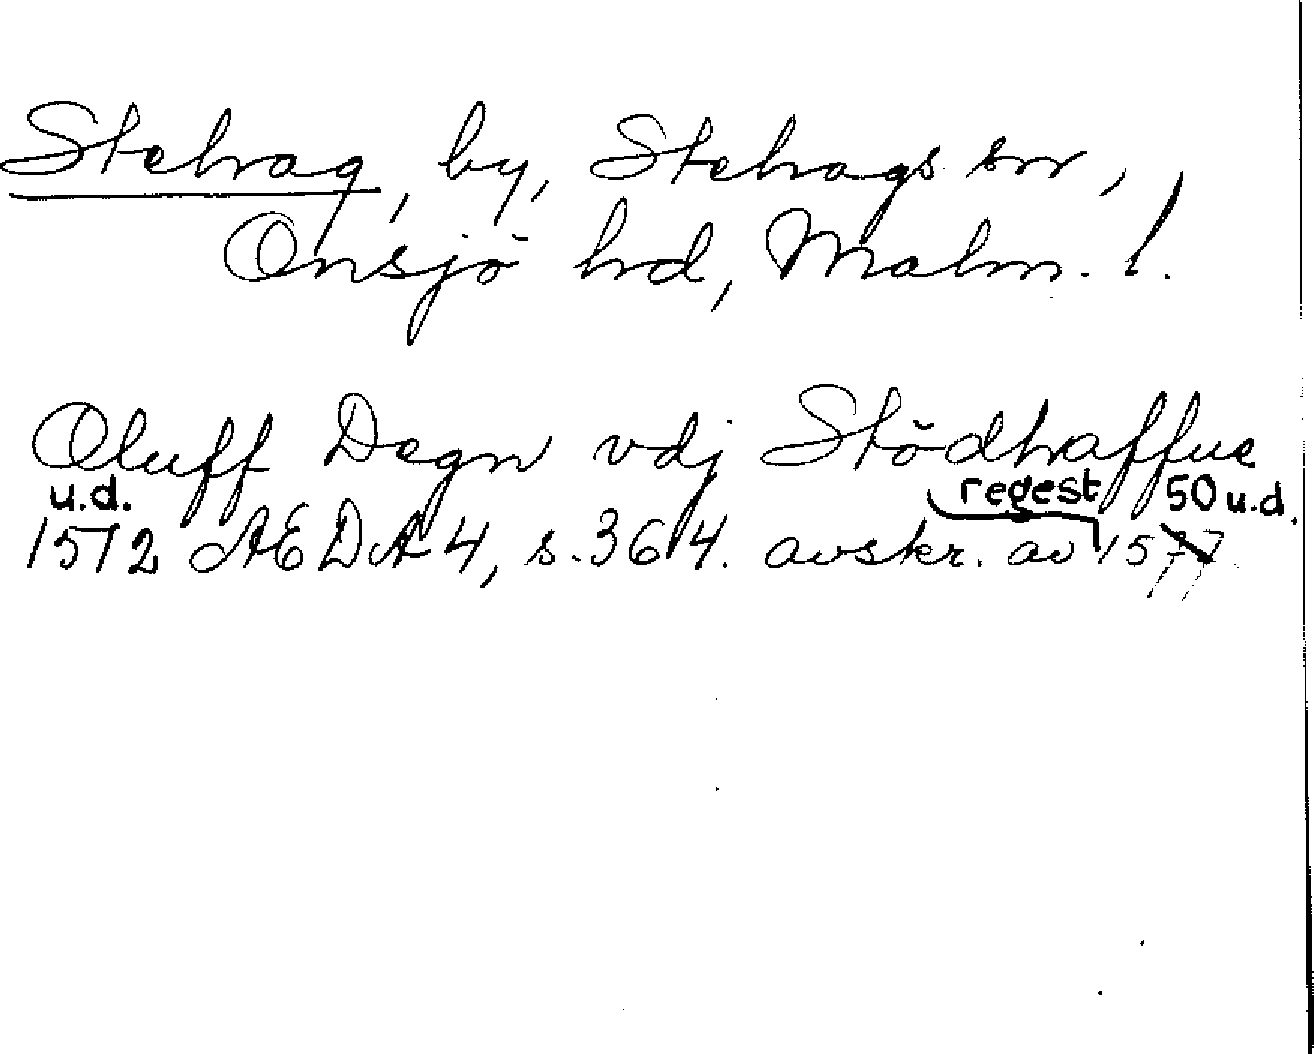 Stehag, by, Stehags sn,
Onsjö hd, Malm. l.
Oluff Degn vdj Stödhaffue
u.d. regest 50 u.d.
1572 ÆDA 4, s. 364. avskr. av 1577